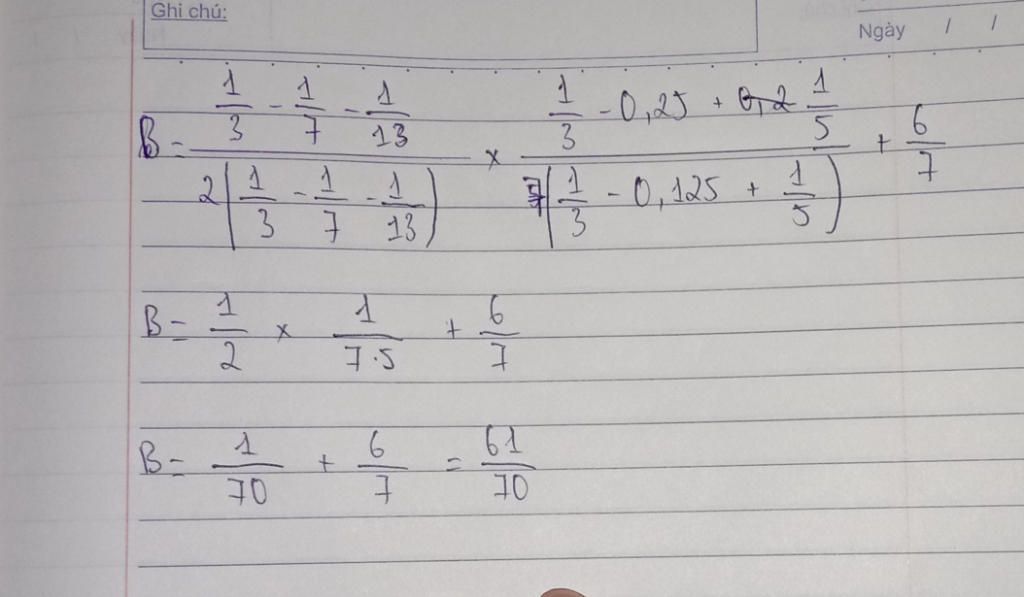 Ghi chú:
Ngày / /
B = (1/3 - 1/7 - 1/13) / (2(1/3 - 1/7 - 1/13)) × (1/3 - 0,25 + 1/5) / (7(1/3 - 0,125 + 1/5)) + 6/7
B = 1/2 × 1/(7.5) + 6/7
B = 1/70 + 6/7 = 61/70